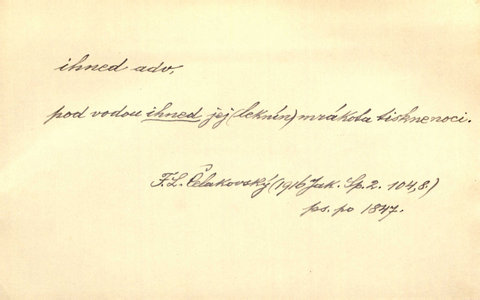 ihned adv.
pod vodou ihned jej (leknín) mrákota tiskne noci.
F. L. Čelakovský (1916 Jak. Sp. 2. 104,8.)
ps. po 1847.